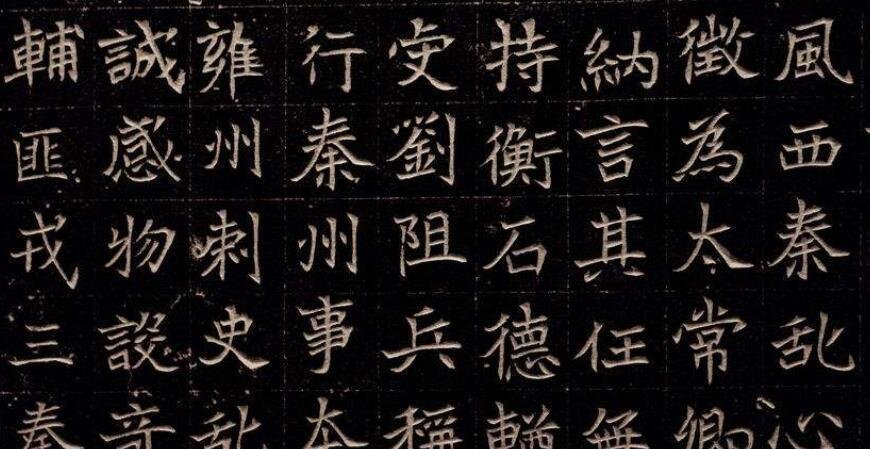 風西秦乱心
徵為太常卿
納言其任無
持衡石德輶
劉阻兵稱
行秦州事本
雍州刺史乱
誠感物設奇
輔匪戎三奉